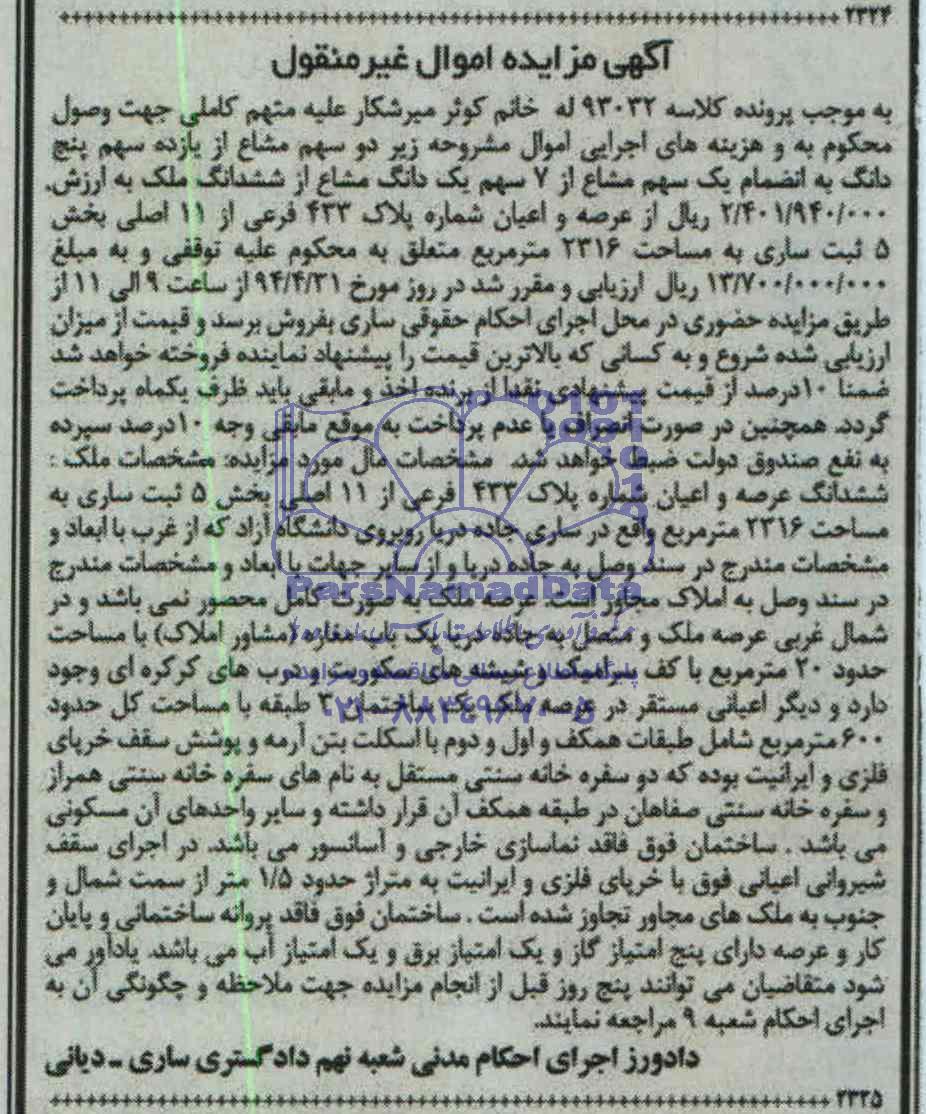 ۲۳۲۴
آگهی مزایده اموال غیرمنقول
به موجب پرونده کلاسه ۹۳۰۳۲ له خانم کوثر میرشکار علیه متهم کاملی جهت وصول
محکوم به و هزینه های اجرایی اموال مشروحه زیر دو سهم مشاع از یازده سهم پنج
دانگ به انضمام یک سهم مشاع از ۷ سهم یک دانگ مشاع از ششدانگ ملک به ارزش
۲/۴۰۱/۹۴۰/۰۰۰ ریال از عرصه و اعیان شماره پلاک ۴۳۳ فرعی از ۱۱ اصلی بخش
۵ ثبت ساری به مساحت ۲۳۱۶ مترمربع متعلق به محکوم علیه توقفی و به مبلغ
۱۳/۷۰۰/۰۰۰/۰۰۰ ریال ارزیابی و مقرر شد در روز مورخ ۹۴/۴/۳۱ از ساعت ۹ الی ۱۱ از
طریق مزایده حضوری در محل اجرای احکام حقوقی ساری بفروش برسد و قیمت از میزان
ارزیابی شده شروع و به کسانی که بالاترین قیمت را پیشنهاد نماینده فروخته خواهد شد
ضمنا ۱۰درصد از قیمت پیشنهادی نقدا از برنده اخذ و مابقی باید ظرف یکماه پرداخت
گردد. همچنین در صورت انصراف یا عدم پرداخت به موقع مابقی وجه ۱۰درصد سپرده
به نفع صندوق دولت ضبط خواهد شد. مشخصات مال مورد مزایده: مشخصات ملک :
ششدانگ عرصه و اعیان شماره پلاک ۴۳۳ فرعی از ۱۱ اصلی بخش ۵ ثبت ساری به
مساحت ۲۳۱۶ مترمربع واقع در ساری جاده دریا روبروی دانشگاه آزاد که از غرب با ابعاد و
مشخصات مندرج در سند وصل به جاده دریا و از سایر جهات با ابعاد و مشخصات مندرج
ParsNamadData
در سند وصل به املاک مجاور است. عرصه ملک به صورت کامل محصور نمی باشد و در
شمال غربی عرصه ملک و متصل به جاده دریا یک باب مغازه (مشاور املاک) با مساحت
حدود ۲۰ مترمربع با کف سرامیک و شیشه های سکوریت و درب های کرکره ای وجود
دارد و دیگر اعیانی مستقر در عرصه ملک یک ساختمان ۳ طبقه با مساحت کل حدود
۰۲۱-۸۸۳۴۹۶۷۰-۵
۶۰۰ مترمربع شامل طبقات همکف و اول و دوم با اسکلت بتن آرمه و پوشش سقف خرپای
فلزی و ایرانیت بوده که دو سفره خانه سنتی مستقل به نام های سفره خانه سنتی همراز
و سفره خانه سنتی صفاهان در طبقه همکف آن قرار داشته و سایر واحدهای آن مسکونی
می باشد . ساختمان فوق فاقد نماسازی خارجی و آسانسور می باشد. در اجرای سقف
شیروانی اعیانی فوق با خرپای فلزی و ایرانیت به متراژ حدود ۱/۵ متر از سمت شمال و
جنوب به ملک های مجاور تجاوز شده است . ساختمان فوق فاقد پروانه ساختمانی و پایان
کار و عرصه دارای پنج امتیاز گاز و یک امتیاز برق و یک امتیاز آب می باشد. یادآور می
شود متقاضیان می توانند پنج روز قبل از انجام مزایده جهت ملاحظه و چگونگی آن به
اجرای احکام شعبه ۹ مراجعه نمایند.
دادورز اجرای احکام مدنی شعبه نهم دادگستری ساری ـ دیانی
۲۳۲۵